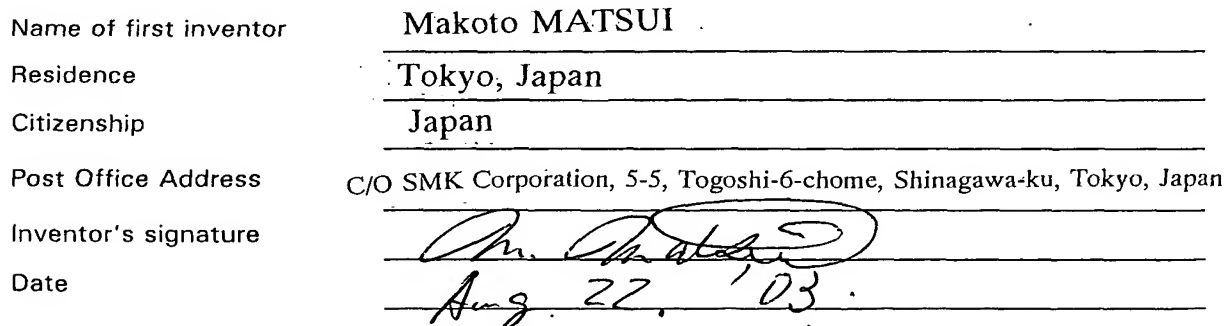 Name of first inventor Makoto MATSUI
Residence Tokyo, Japan
Citizenship Japan
Post Office Address C/O SMK Corporation, 5-5, Togoshi-6-chome, Shinagawa-ku, Tokyo, Japan
Inventor's signature M. Matsui
Date Aug. 22. '03.